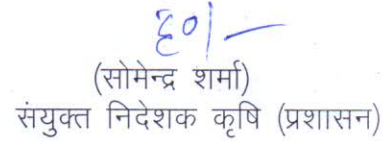 ह०/-
(सोमेन्द्र शर्मा)
संयुक्त निदेशक कृषि (प्रशासन)